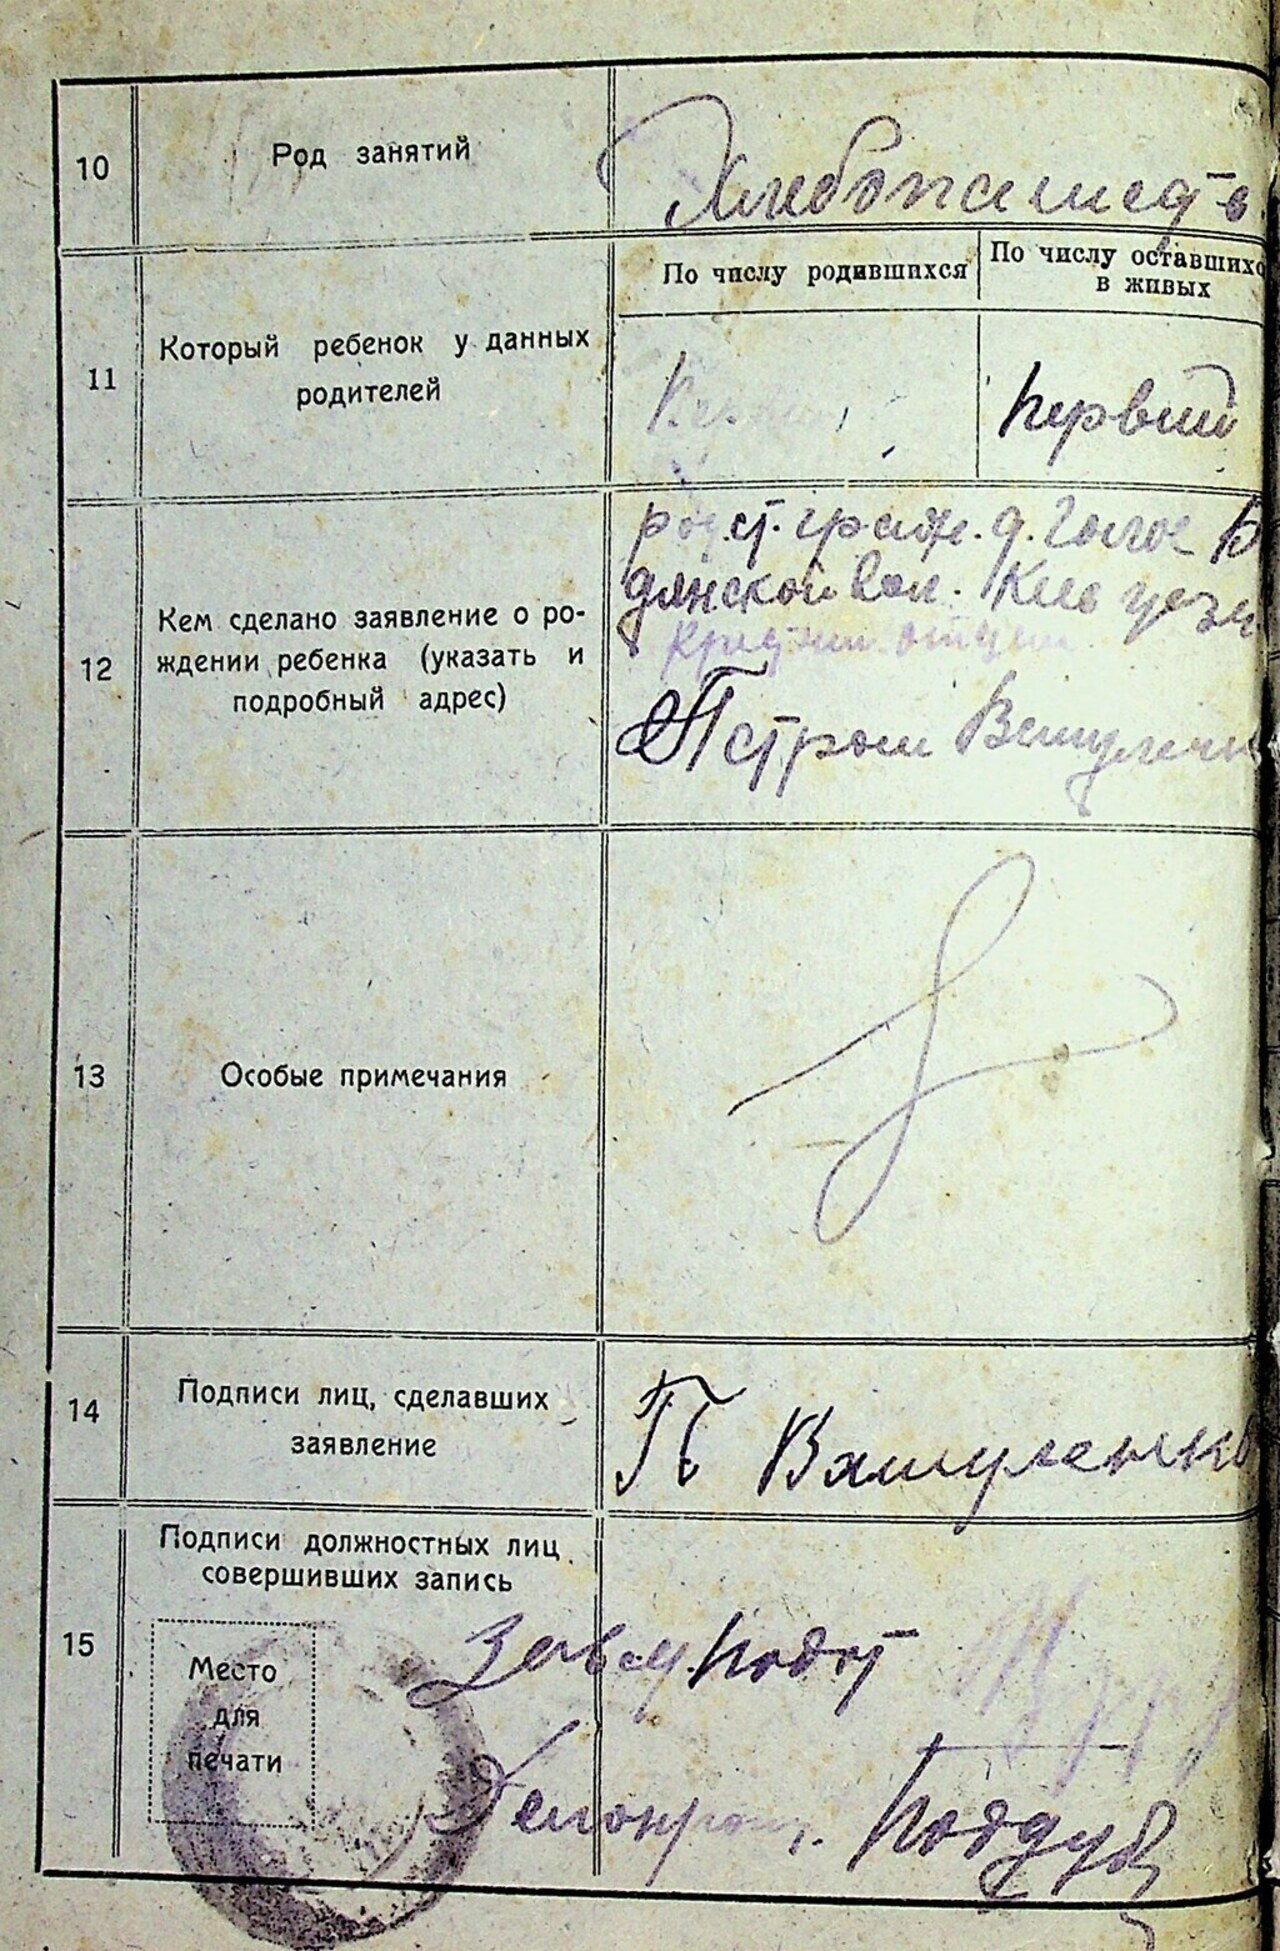 10
Род занятий
Хлебопашест-о
11
Который ребенок у данных
родителей
По числу родившихся
По числу оставшихс
в живых
Первий
12
Кем сделано заявление о ро-
ждении ребенка (указать и
подробный адрес)
ст. граж. д.
дянской вол. Киев уезд
отцем
Петром
13
Особые примечания
14
Подписи лиц, сделавших
заявление
П Вашуленко
15
Подписи должностных лиц
совершивших запись
Место
для
печати
Делопроиз. Поддуб